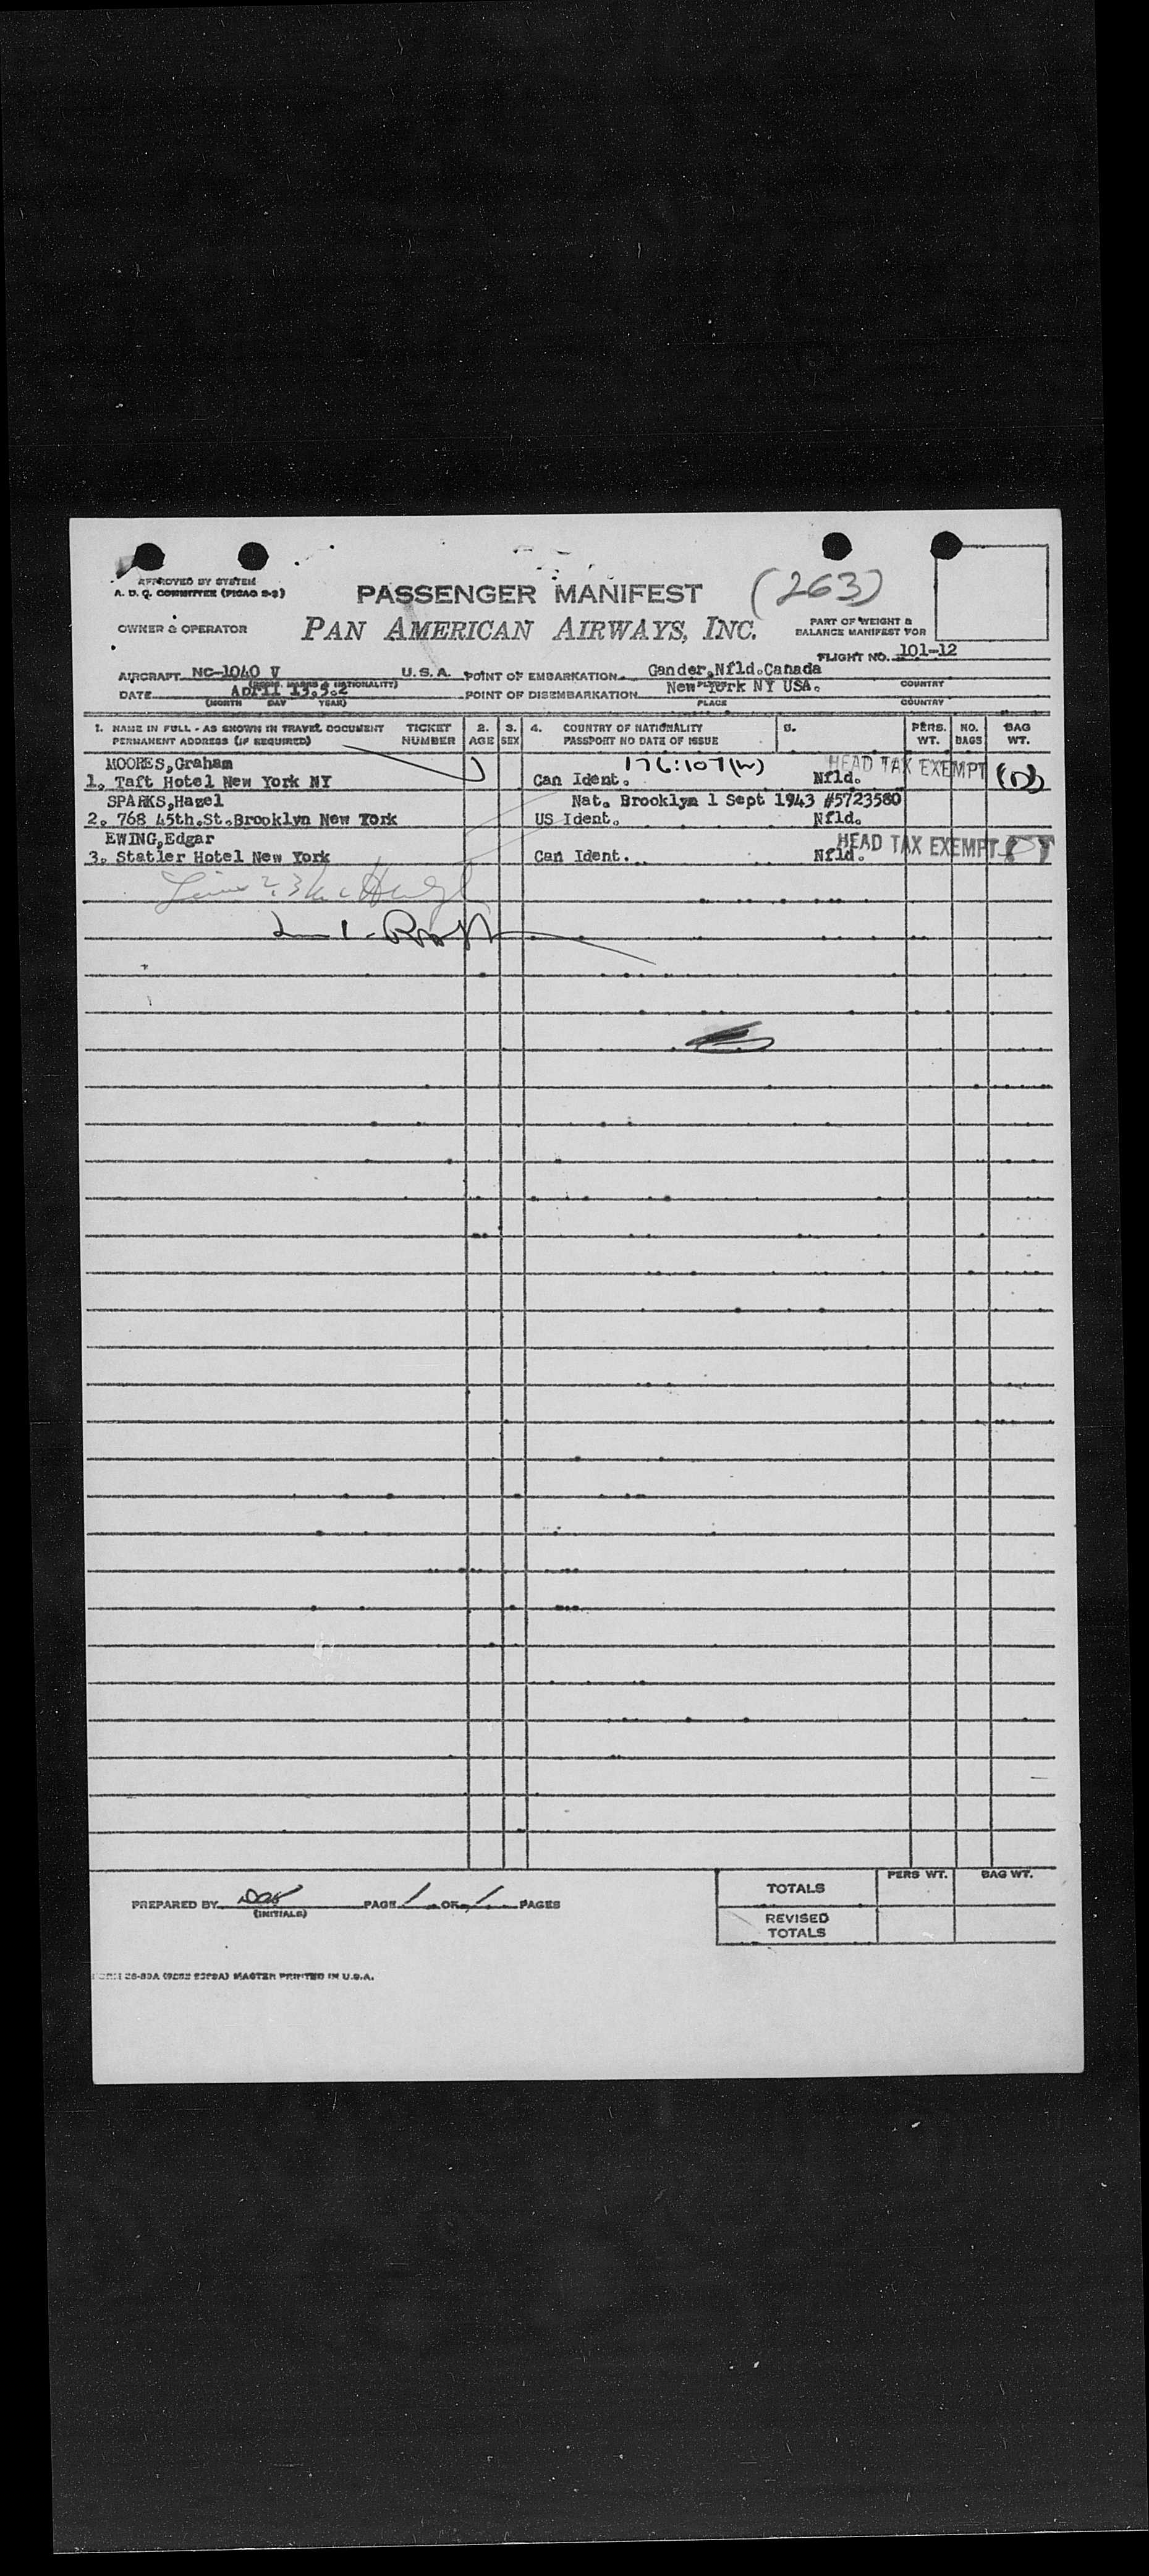 APPROVED BY SYSTEM
A. D. Q. COMMITTEE (PICAO S-2)
PASSENGER MANIFEST (263)
OWNER & OPERATOR PAN AMERICAN AIRWAYS, INC. PART OF WEIGHT &
BALANCE MANIFEST FOR
FLIGHT NO. 101-12
AIRCRAFT NC-1040 V U.S.A. POINT OF EMBARKATION Gander,Nfld.Canada
DATE April 13.5.2 POINT OF DISEMBARKATION New York NY USA. COUNTRY
(MONTH DAY YEAR) PLACE COUNTRY
1. NAME IN FULL - AS SHOWN IN TRAVEL DOCUMENT TICKET 2. 3. 4. COUNTRY OF NATIONALITY 5. PERS. NO. BAG
PERMANENT ADDRESS (IF REQUIRED) NUMBER AGE SEX PASSPORT NO DATE OF ISSUE WT. BAGS WT.
MOORES,Graham 176:107(W) HEAD TAX EXEMPT
1. Taft Hotel New York NY Can Ident. Nfld.
SPARKS,Hazel Nat. Brooklyn 1 Sept 1943 #5723580
2. 768 45th.St.Brooklyn New York US Ident. Nfld.
EWING,Edgar HEAD TAX EXEMPT
3. Statler Hotel New York Can Ident. Nfld.
PREPARED BY PAGE 1 OF 1 PAGES
(INITIALS)
PERS WT. BAG WT.
TOTALS
REVISED
TOTALS
MASTER PRINTED IN U.S.A.